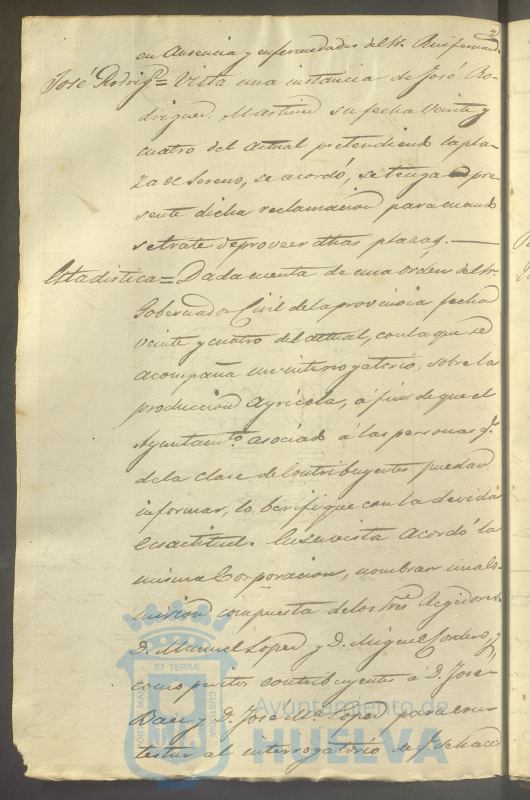 en Ausencia y enfermedades del Sr. Ruifernandz
José Rodrigz = Vista una instancia de José Ro-
driguez Martinez su fecha Veinte y
cuatro del actual pretendiendo la pla-
za de Sereno, se acordó, se tenga pre
sente dicha reclamacion para cuando
se trate de proveer dhas plazas.
Estadistica = Dada cuenta de una órden del Sr.
Gobernador Civil de la provincia fecha
veinte y cuatro del actual, con la que se
acompaña un interrogatorio, sobre la
produccion Agrícola, á fin de que el
Ayuntamto. asociado á las personas q.
de la clase de Contribuyentes puedan
informar, lo berifique con la devida
Exactitud. En su vista acordó la
misma Corporacion, nombrar una Co-
mision compuesta de los Sres. Regidores
D. Manuel Lopez y D. Miguel Cordero, y
como peritos contribuyentes á D. José
y D. José Ma. Lopez para con-
testar al interrogatorio de q. se hace
ET TERRÆ
PORTUS MARIS
CUSTODIA
Ayuntamiento de
HUELVA